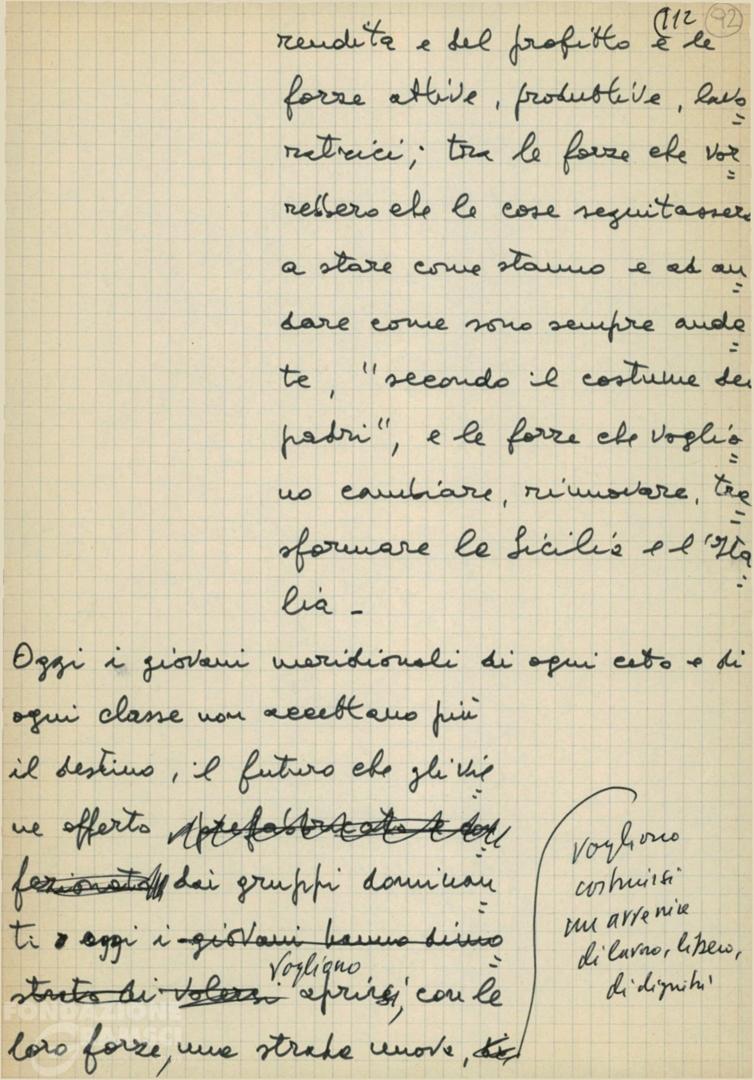 112 92
rendita e del profitto e le
forze attive, produttive, lavo
ratrici; tra le forze che vor
rebbero che le cose seguitassero
a stare come stanno e ad an
dare come sono sempre anda
te, "secondo il costume dei
padri", e le forze che voglio
no cambiare, rinnovare, tra
sformare la Sicilia e l'Ita
lia -
Oggi i giovani meridionali di ogni ceto e di
ogni classe non accettano più
il destino, il futuro che gli vie
ne offerto prefabbricato e con
fezionato dai gruppi dominan
ti oggi i giovani hanno dimo
strato di volersi vogliono aprirsi, con le
loro forze, una strada nuova,
vogliono
costruirsi
un avvenire
di lavoro, libero,
di dignità
FONDAZIONE
GRAMSCI